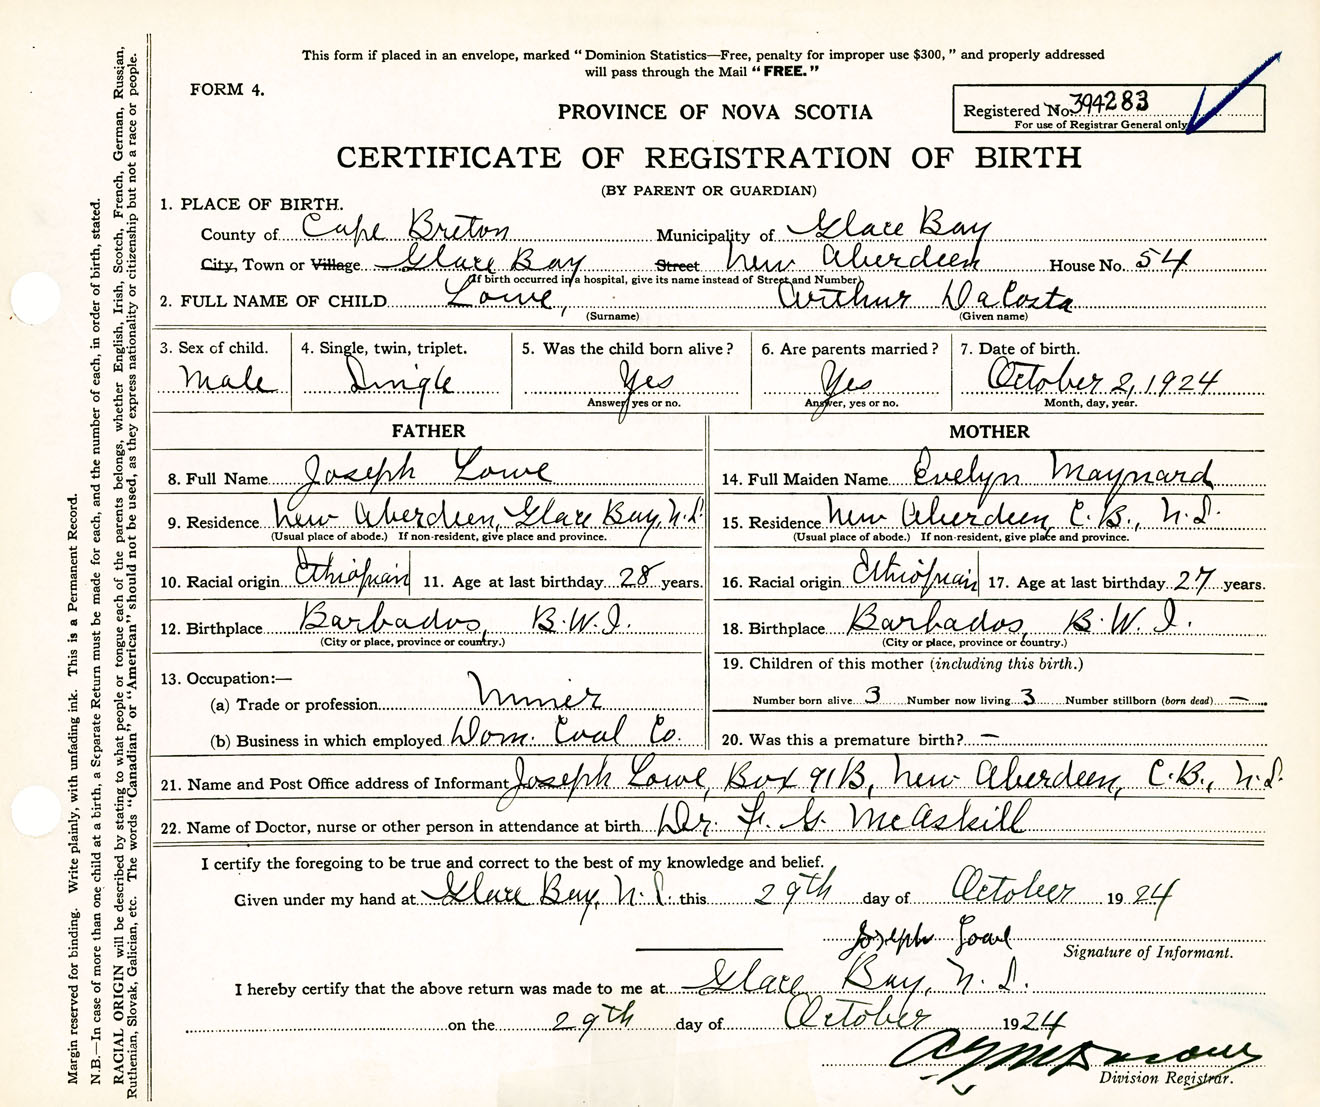 This form if placed in an envelope, marked "Dominion Statistics—Free, penalty for improper use $300," and properly addressed
will pass through the Mail "FREE."
FORM 4.
PROVINCE OF NOVA SCOTIA
Registered No. 394283
For use of Registrar General only
CERTIFICATE OF REGISTRATION OF BIRTH
(BY PARENT OR GUARDIAN)
1. PLACE OF BIRTH.
County of Cape Breton Municipality of Glace Bay
City, Town or Village Glace Bay Street New Aberdeen House No. 54
(If birth occurred in a hospital, give its name instead of Street and Number)
2. FULL NAME OF CHILD Lowe, Arthur DaCosta
(Surname) (Given name)
3. Sex of child. 4. Single, twin, triplet. 5. Was the child born alive? 6. Are parents married? 7. Date of birth.
Male Single Yes Yes October 2, 1924
Answer yes or no. Answer, yes or no. Month, day, year.
FATHER
8. Full Name Joseph Lowe
9. Residence New Aberdeen, Glace Bay, N.S.
(Usual place of abode.) If non-resident, give place and province.
10. Racial origin Ethiopian 11. Age at last birthday 28 years.
12. Birthplace Barbados, B.W.I.
(City or place, province or country.)
13. Occupation:—
(a) Trade or profession Miner
(b) Business in which employed Dom. Coal Co.
MOTHER
14. Full Maiden Name Evelyn Maynard
15. Residence New Aberdeen, C.B., N.S.
(Usual place of abode.) If non-resident, give place and province.
16. Racial origin Ethiopian 17. Age at last birthday 27 years.
18. Birthplace Barbados, B.W.I.
(City or place, province or country.)
19. Children of this mother (including this birth.)
Number born alive 3 Number now living 3 Number stillborn (born dead) —
20. Was this a premature birth? —
21. Name and Post Office address of Informant Joseph Lowe, Box 91B, New Aberdeen, C.B., N.S.
22. Name of Doctor, nurse or other person in attendance at birth Dr. F. G. McAskill
I certify the foregoing to be true and correct to the best of my knowledge and belief.
Given under my hand at Glace Bay, N.S. this 29th day of October 1924
Joseph Lowe
Signature of Informant.
I hereby certify that the above return was made to me at Glace Bay, N.S.
on the 29th day of October 1924
Division Registrar.
Margin reserved for binding. Write plainly, with unfading ink. This is a Permanent Record.
N.B.—In case of more than one child at a birth, a Separate Return must be made for each, and the number of each, in order of birth, stated.
RACIAL ORIGIN will be described by stating to what people or tongue each of the parents belongs, whether English, Irish, Scotch, French, German, Russian,
Ruthenian, Slovak, Galician, etc. The words "Canadian" or "American" should not be used, as they express nationality or citizenship but not a race or people.